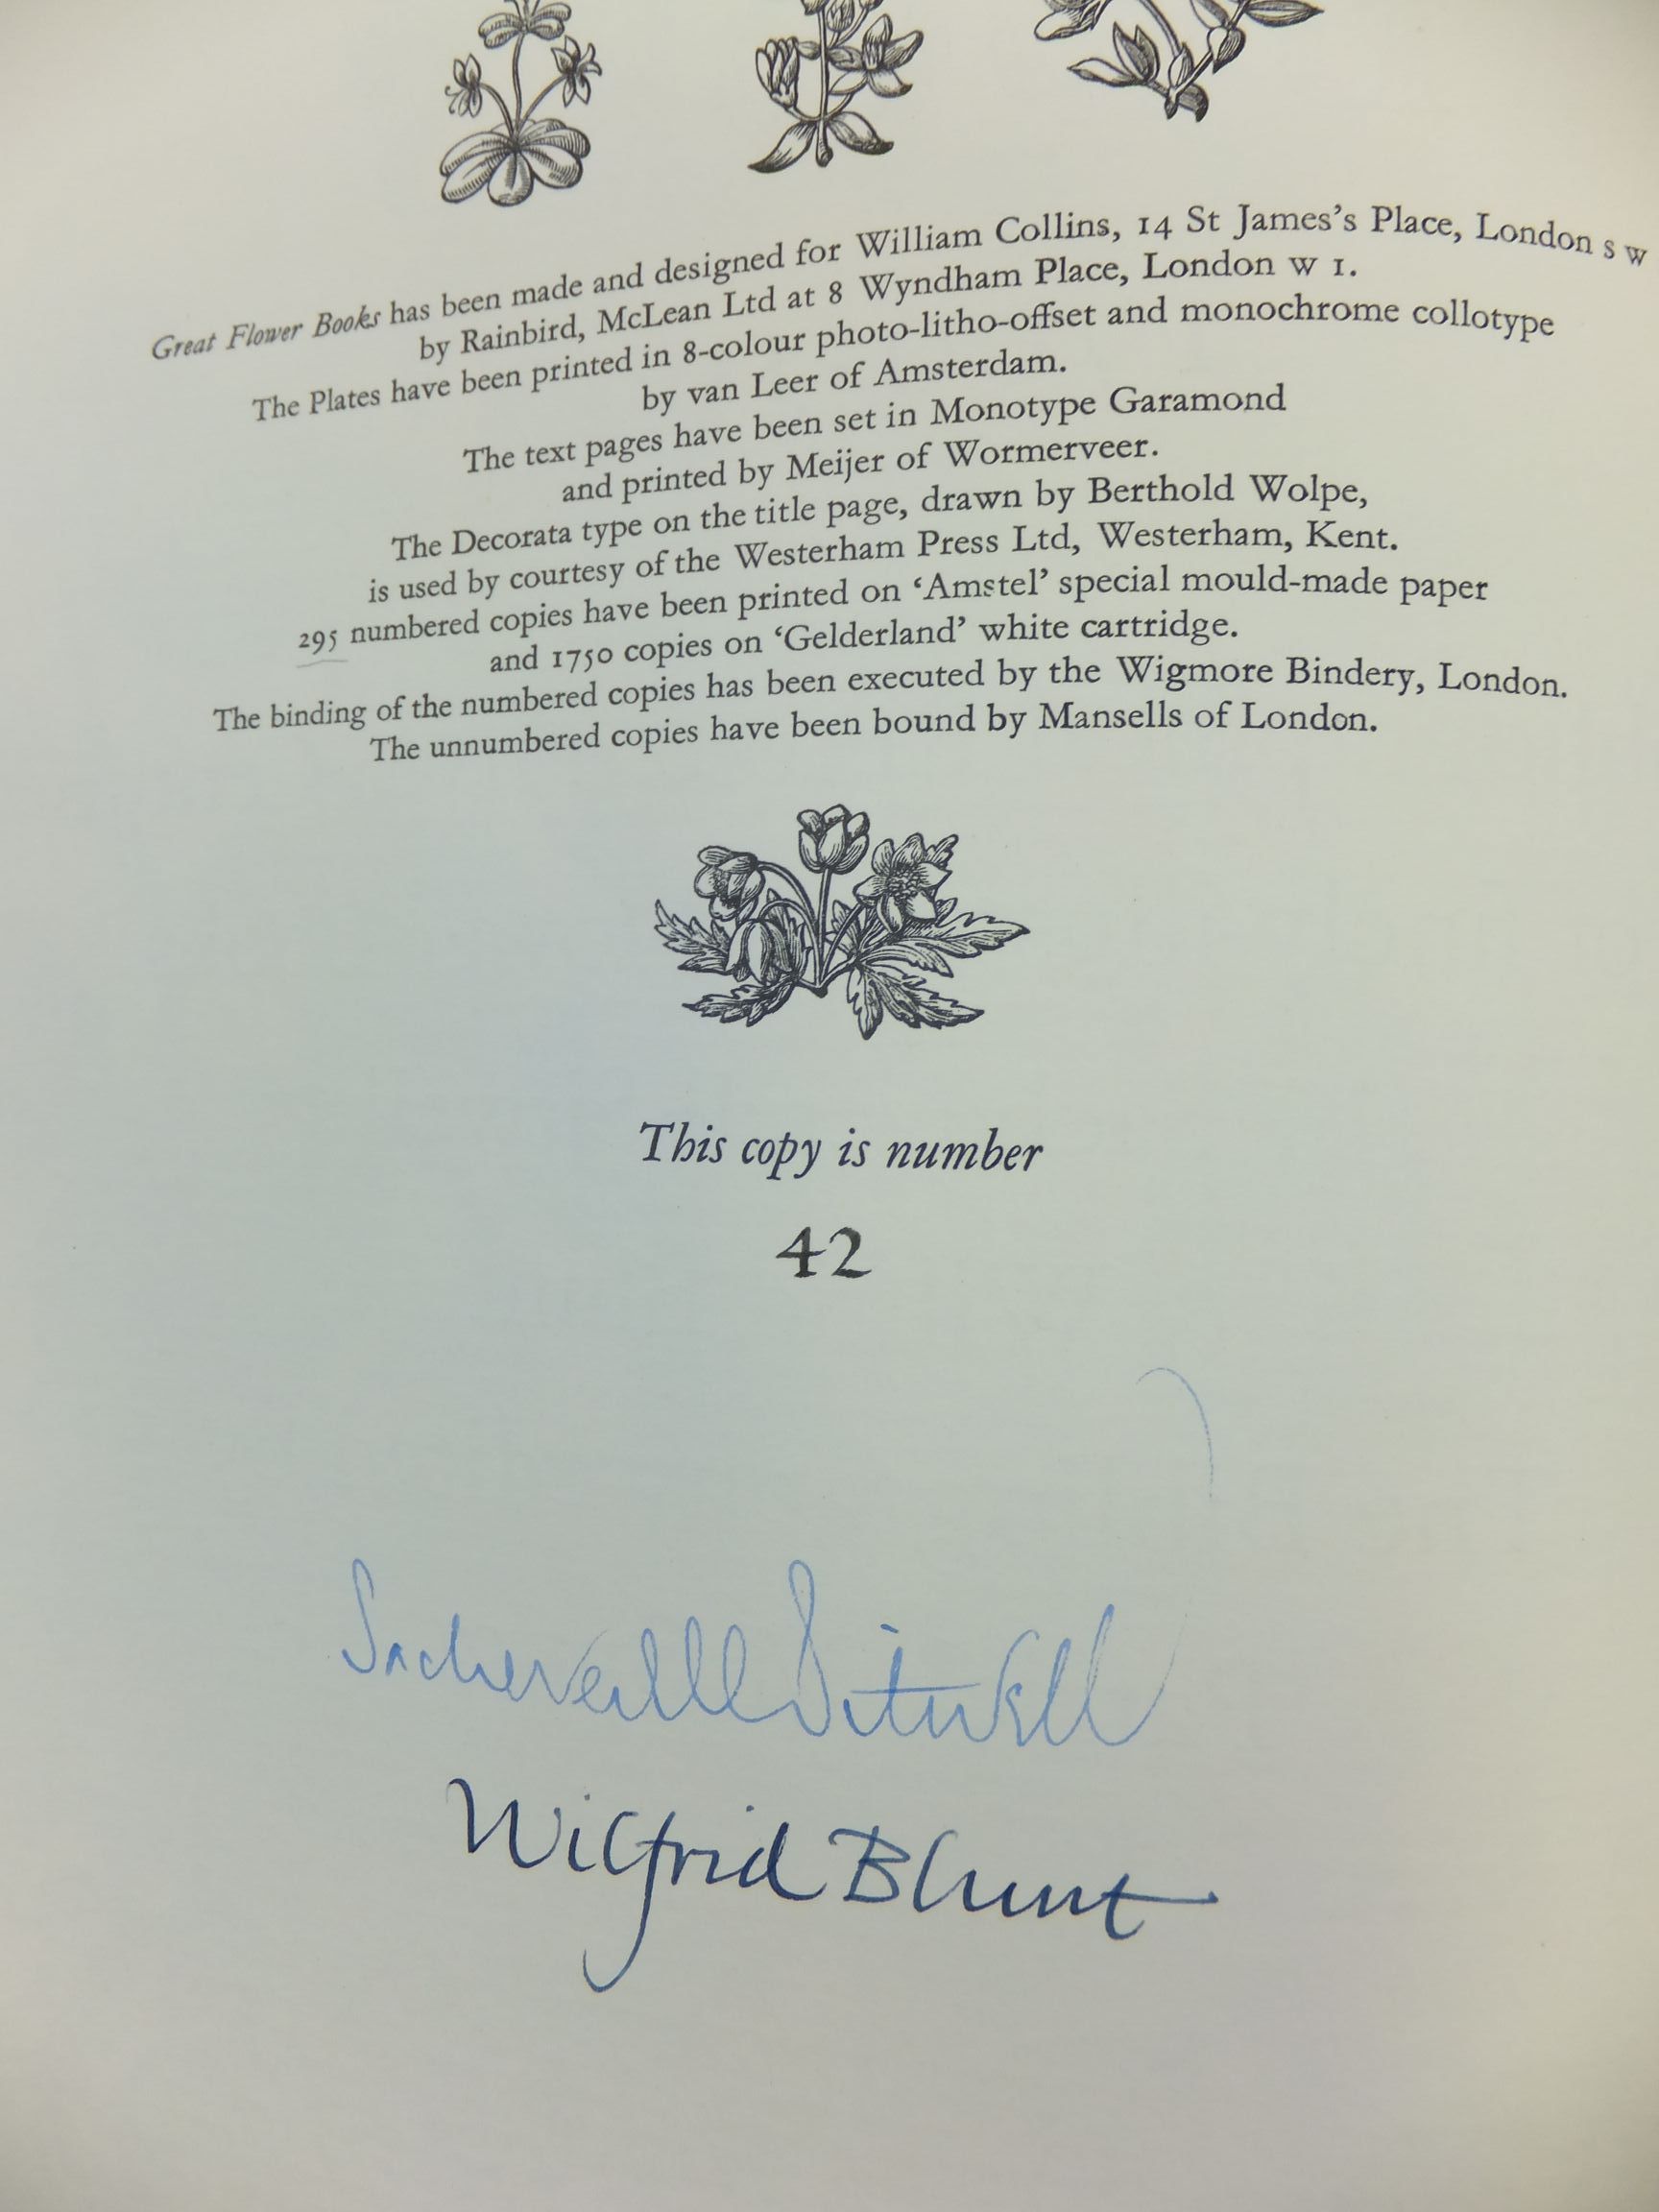 Great Flower Books has been made and designed for William Collins, 14 St James's Place, London S W
by Rainbird, McLean Ltd at 8 Wyndham Place, London W 1.
The Plates have been printed in 8-colour photo-litho-offset and monochrome collotype
by van Leer of Amsterdam.
The text pages have been set in Monotype Garamond
and printed by Meijer of Wormerveer.
The Decorata type on the title page, drawn by Berthold Wolpe,
is used by courtesy of the Westerham Press Ltd, Westerham, Kent.
295 numbered copies have been printed on ‘Amstel’ special mould-made paper
and 1750 copies on ‘Gelderland’ white cartridge.
The binding of the numbered copies has been executed by the Wigmore Bindery, London.
The unnumbered copies have been bound by Mansells of London.
This copy is number
42
Sacheverell Sitwell
Wilfrid Blunt